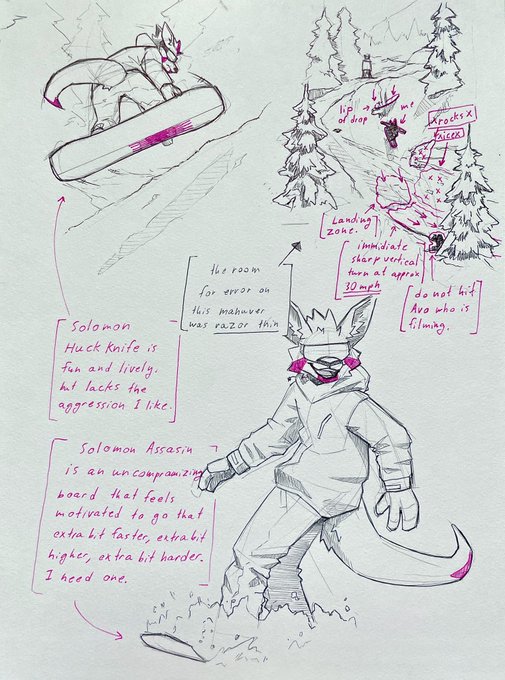 lip
of drop
me
xrocksx
xicex
Landing
zone.
immidiate
sharp vertical
turn at approx
30 mph
do not hit
Ava who is
filming.
the room
for error on
this manuver
was razor thin
Solomon
Huck Knife is
fun and lively.
but lacks the
aggression I like.
Solomon Assasin
is an uncompramizing
board that feels
motivated to go that
extra bit faster, extra bit
higher, extra bit harder.
I need one.